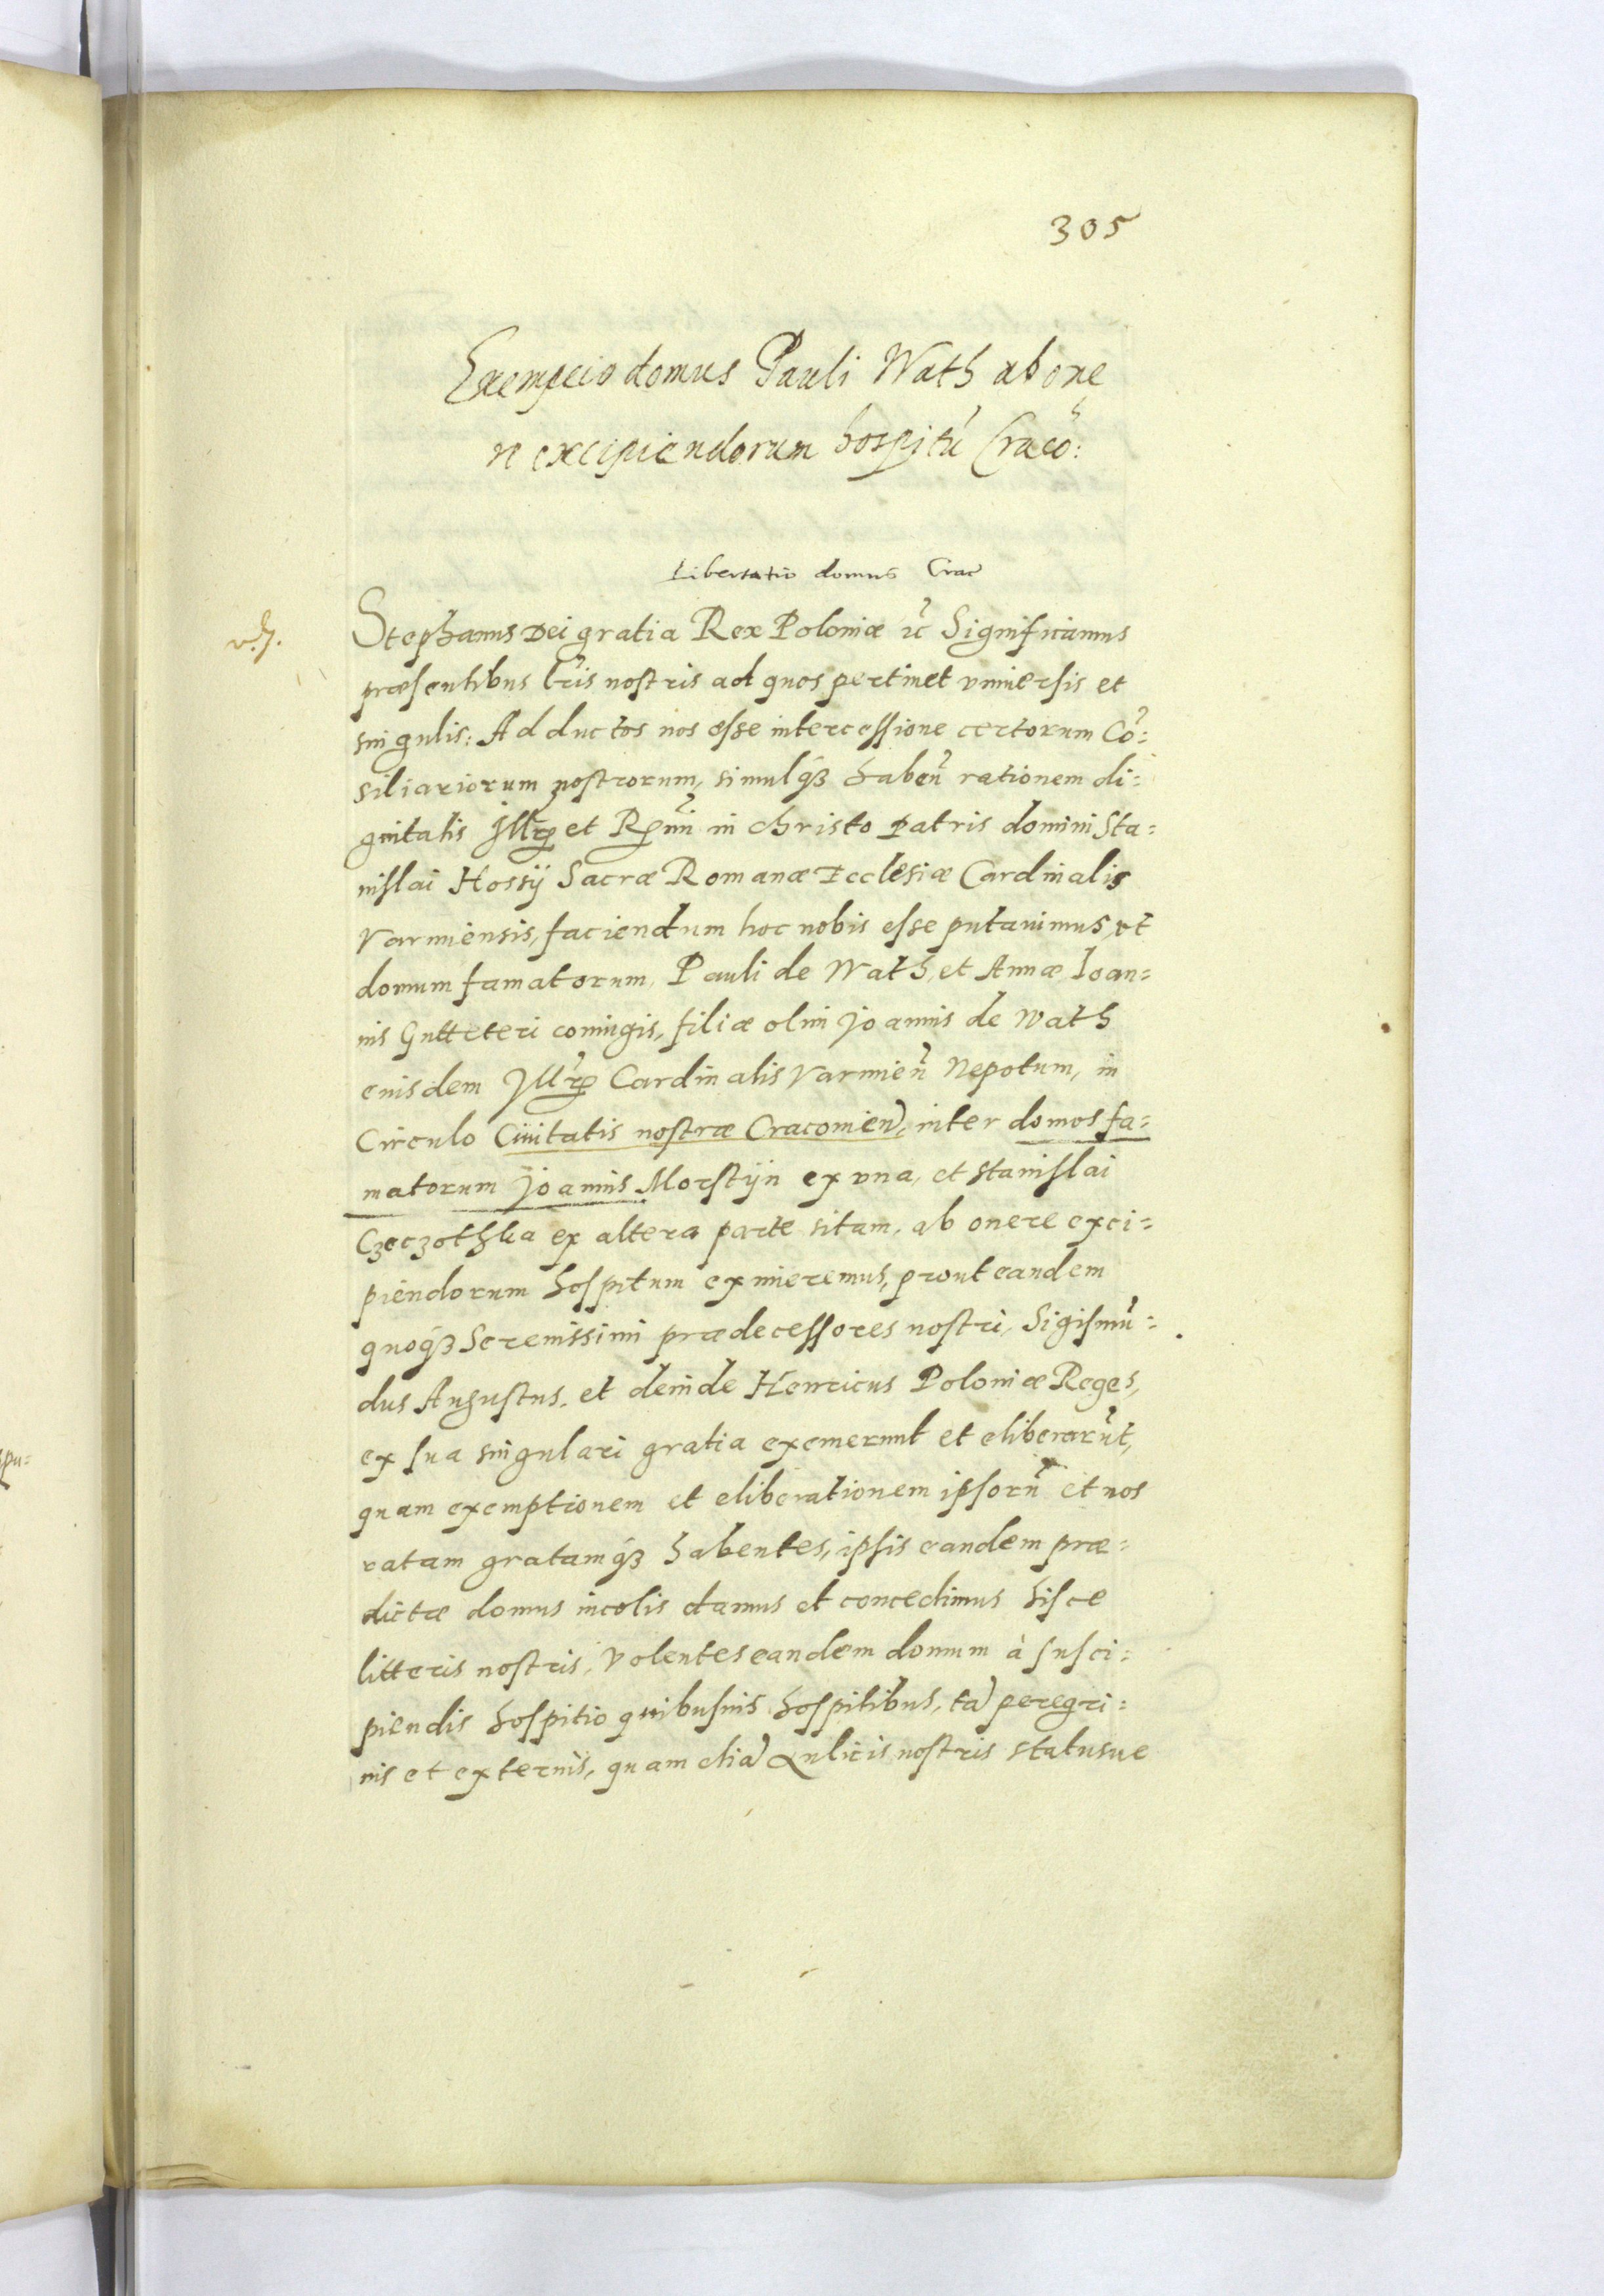 305
Exempcio domus Pauli Wath ab one
re excipiendorum hospitũ Craco:
Libertatio domus Crac
Stephanus Dei gratia Rex Poloniæ ic̃ Significamus
præsentibus lr̃is nostris ad quos pertinet vniuersis et
singulis: Adductos nos esse intercessione certorum Cõ:
siliariorum nostrorum, simulq́ꝫ habeñ rationem di:
gnitatis Jllr̃ et Rmĩ in christo Patris domini Sta:
nislai Hosij Sacræ Romanæ Ecclesiæ Cardinalis
Varmiensis, faciendum hoc nobis esse putauimus, vt
domum famatorum, Pauli de Wath, et Annæ Ioan:
nis Gutteteri coniugis, filiæ olim Joannis de Wath
eiusdem Jllr̃ Cardinalis Varmieñ Nepotum, in
Circulo Ciuitatis nostræ Cracouieñ, inter domos fa:
matorum Joannis Morstijn ex vna, et Stanislai
Czeczothka ex altera parte sitam, ab onere exci:
piendorum hospitum eximeremus, prout eandem
quoq́ꝫ Serenissimi prædecessores nostri, Sigismũ:
dus Augustus, et deinde Henricus Poloniæ Reges,
ex sua singulari gratia exemerunt et eliberarũt,
quam exemptionem et eliberationem ipsorũ et nos
ratam gratamq́ꝫ habentes, ipsis eandem præ:
dictæ domus incolis damus et concedimus hisce
litteris nostris, Volentes eandem domum à susci:
piendis hospitio quibusuis hospitibus, tã peregri:
nis et externis, quam etiã Aulicis nostris statusue